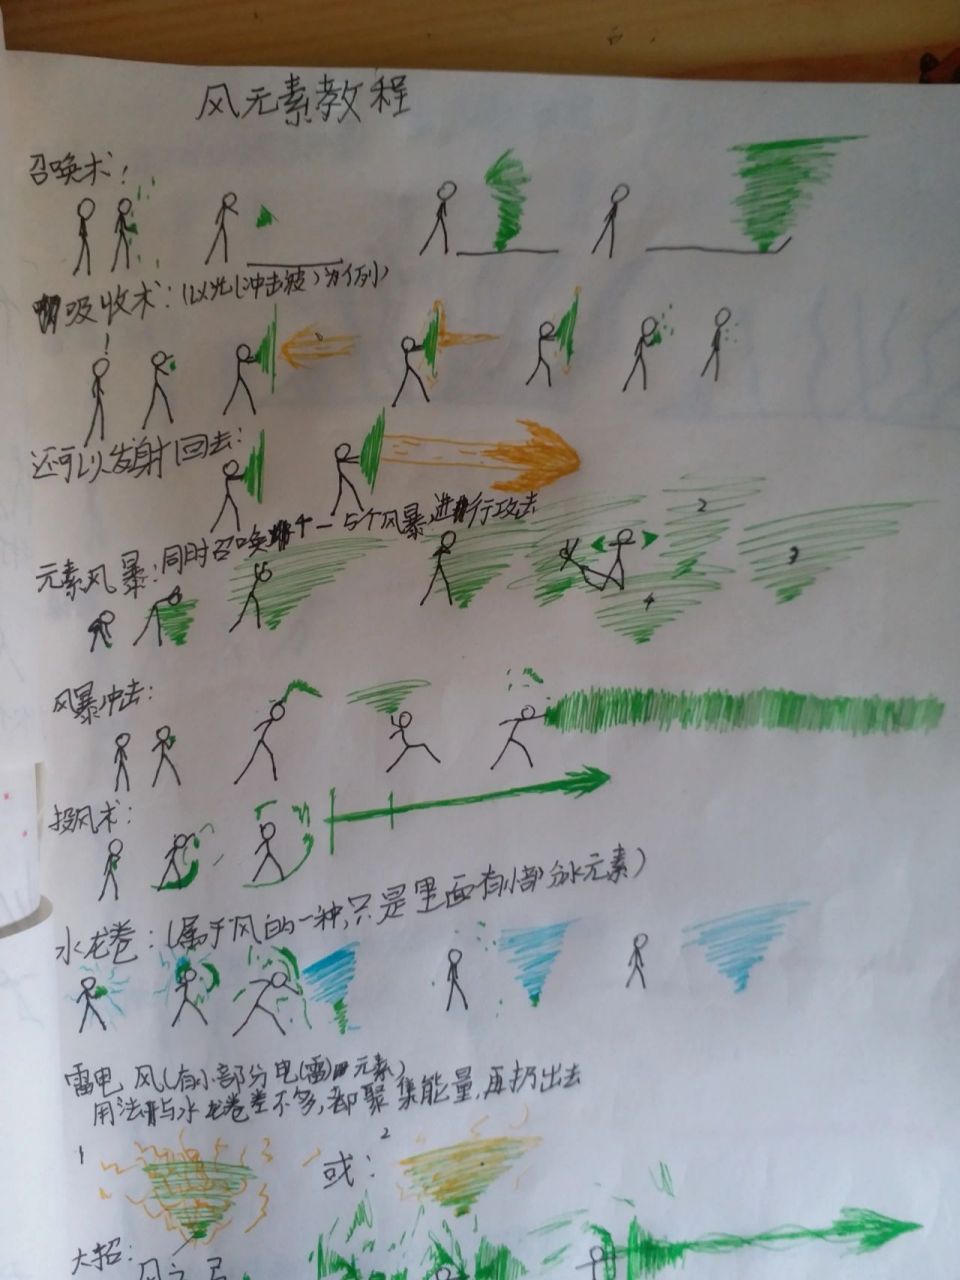 风元素教程
召唤术!
吸收术:(以光(冲击波)为例)
!
还可以发射回去:
元素风暴:同时召唤4-5个风暴,进行攻击
2
3
4
风暴冲击:
投风术:
水龙卷:(属于风的一种,只是里面有小部分水元素)
雷电风(有小部分电(雷)元素)
用法与水龙卷差不多,都聚集能量,再扔出去
1
或:
2
大招:
风之弓